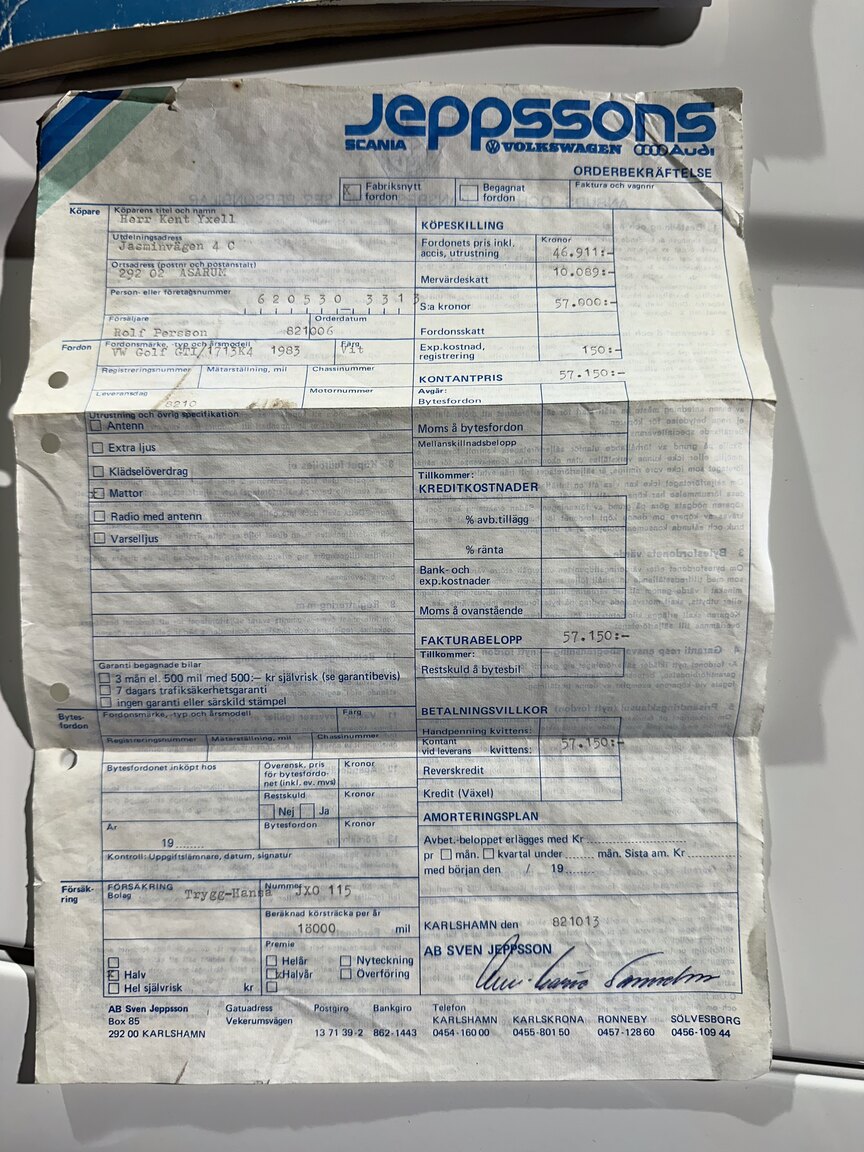 Jeppssons
SCANIA VOLKSWAGEN Audi
ORDERBEKRÄFTELSE
x Fabriksnytt fordon Begagnat fordon Faktura och vagnnr
Köpare Köparens titel och namn
Herr Kent Yxell
Utdelningsadress
Jasminvägen 4 C
Ortsadress (postnr och postanstalt)
292 02 ASARUM
Person- eller företagsnummer
620530 3313
Försäljare Orderdatum
Rolf Persson 821006
Fordon Fordonsmärke, -typ och årsmodell Färg
VW Golf GTI/1713K4 1983 Vit
Registreringsnummer Mätarställning, mil Chassinummer
Leveransdag Motornummer
8210
Utrustning och övrig specifikation
Antenn
Extra ljus
Klädselöverdrag
x Mattor
Radio med antenn
Varselljus
Garanti begagnade bilar
3 mån el. 500 mil med 500:– kr självrisk (se garantibevis)
7 dagars trafiksäkerhetsgaranti
ingen garanti eller särskild stämpel
Bytes-fordon Fordonsmärke, -typ och årsmodell Färg
Registreringsnummer Mätarställning, mil Chassinummer
Bytesfordonet inköpt hos Överensk. pris för bytesfordonet (inkl. ev. mvs) Kronor
Restskuld Kronor
Nej Ja
År Bytesfordon Kronor
19
Kontroll: Uppgiftslämnare, datum, signatur
Försäk-ring FÖRSÄKRING
Bolag Trygg-Hansa Nummer JXO 115
Beräknad körsträcka per år
18000 mil
Premie
Helår Nyteckning
x Halv x Halvår Överföring
Hel självrisk kr
KÖPESKILLING
Fordonets pris inkl. accis, utrustning Kronor 46.911:-
Mervärdeskatt 10.089:-
S:a kronor 57.000:-
Fordonsskatt
Exp.kostnad, registrering 150:-
KONTANTPRIS 57.150:-
Avgår:
Bytesfordon
Moms å bytesfordon
Mellanskillnadsbelopp
Tillkommer:
KREDITKOSTNADER
% avb.tillägg
% ränta
Bank- och exp.kostnader
Moms å ovanstående
FAKTURABELOPP 57.150:-
Tillkommer:
Restskuld å bytesbil
BETALNINGSVILLKOR
Handpenning kvittens:
Kontant vid leverans kvittens: 57.150:-
Reverskredit
Kredit (Växel)
AMORTERINGSPLAN
Avbet.-beloppet erlägges med Kr
pr mån. kvartal under mån. Sista am. Kr
med början den / 19
KARLSHAMN den 821013
AB SVEN JEPPSSON
AB Sven Jeppsson Gatuadress Postgiro Bankgiro Telefon
Box 85 Vekerumsvägen KARLSHAMN KARLSKRONA RONNEBY SÖLVESBORG
292 00 KARLSHAMN 13 71 39-2 862-1443 0454-160 00 0455-801 50 0457-128 60 0456-109 44